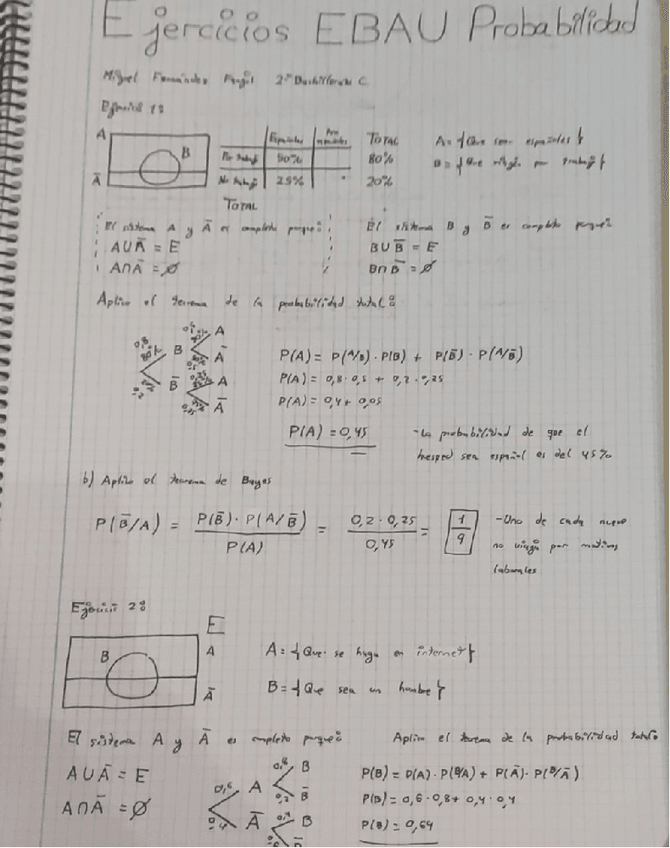 Ejercicios EBAU Probabilidad
Miguel Fernández 2º Bachillerato C
Ejercicio 1º
A
B
Ā
Españoles TOTAL
Por trabajo 50% 80%
No trabajo 25% 20%
TOTAL
A = { Que sean españoles }
B = { Que venga por trabajo }
El sistema A y Ā es completo porque:
A∪Ā = E
A∩Ā = Ø
El sistema B y B̄ es completo porque:
B∪B̄ = E
B∩B̄ = Ø
Aplico el teorema de la probabilidad total:
0,8 B A
Ā
0,2 B̄ A
Ā
P(A) = P(A/B) · P(B) + P(B̄) · P(A/B̄)
P(A) = 0,8 · 0,5 + 0,2 · 0,25
P(A) = 0,4 + 0,05
P(A) = 0,45
- La probabilidad de que el
huesped sea español es del 45%
b) Aplico el teorema de Bayes
P(B̄/A) = P(B̄) · P(A/B̄) / P(A) = 0,2 · 0,25 / 0,45 = 1/9
- Uno de cada nueve
no venga por motivos
laborales
Ejercicio 2º
E
B
A
Ā
A = { Que se haga en internet }
B = { Que sea un hombre }
El sistema A y Ā es completo porque:
A∪Ā = E
A∩Ā = Ø
0,6 A 0,8 B
0,2 B̄
0,4 Ā 0,4 B
Aplico el teorema de la probabilidad total:
P(B) = P(A) · P(B/A) + P(Ā) · P(B/Ā)
P(B) = 0,6 · 0,8 + 0,4 · 0,4
P(B) = 0,64